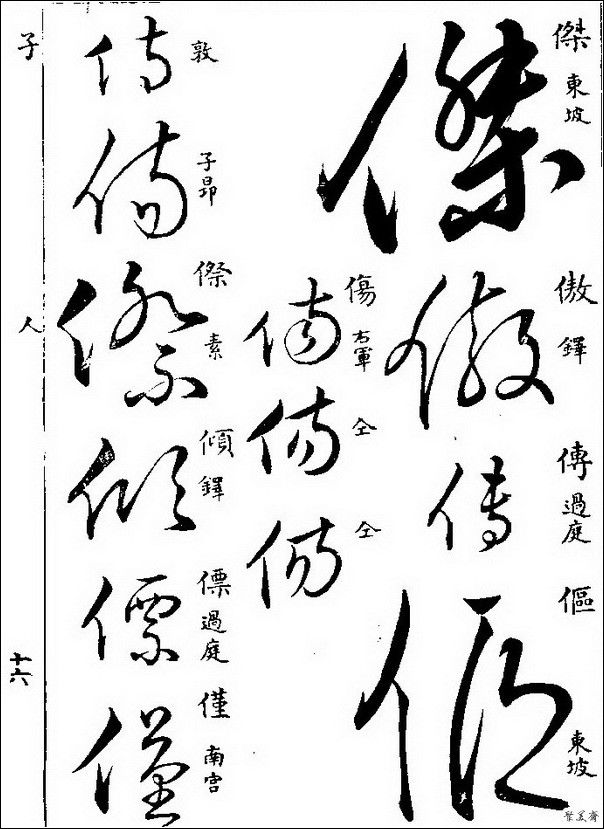 傑 東坡
傲 鐸
傳 過庭
傴 東坡
傷 右軍
仝
仝
敦
子昂
傺 素
傾 鐸
僄 過庭
僅 南宮
子 人 十六